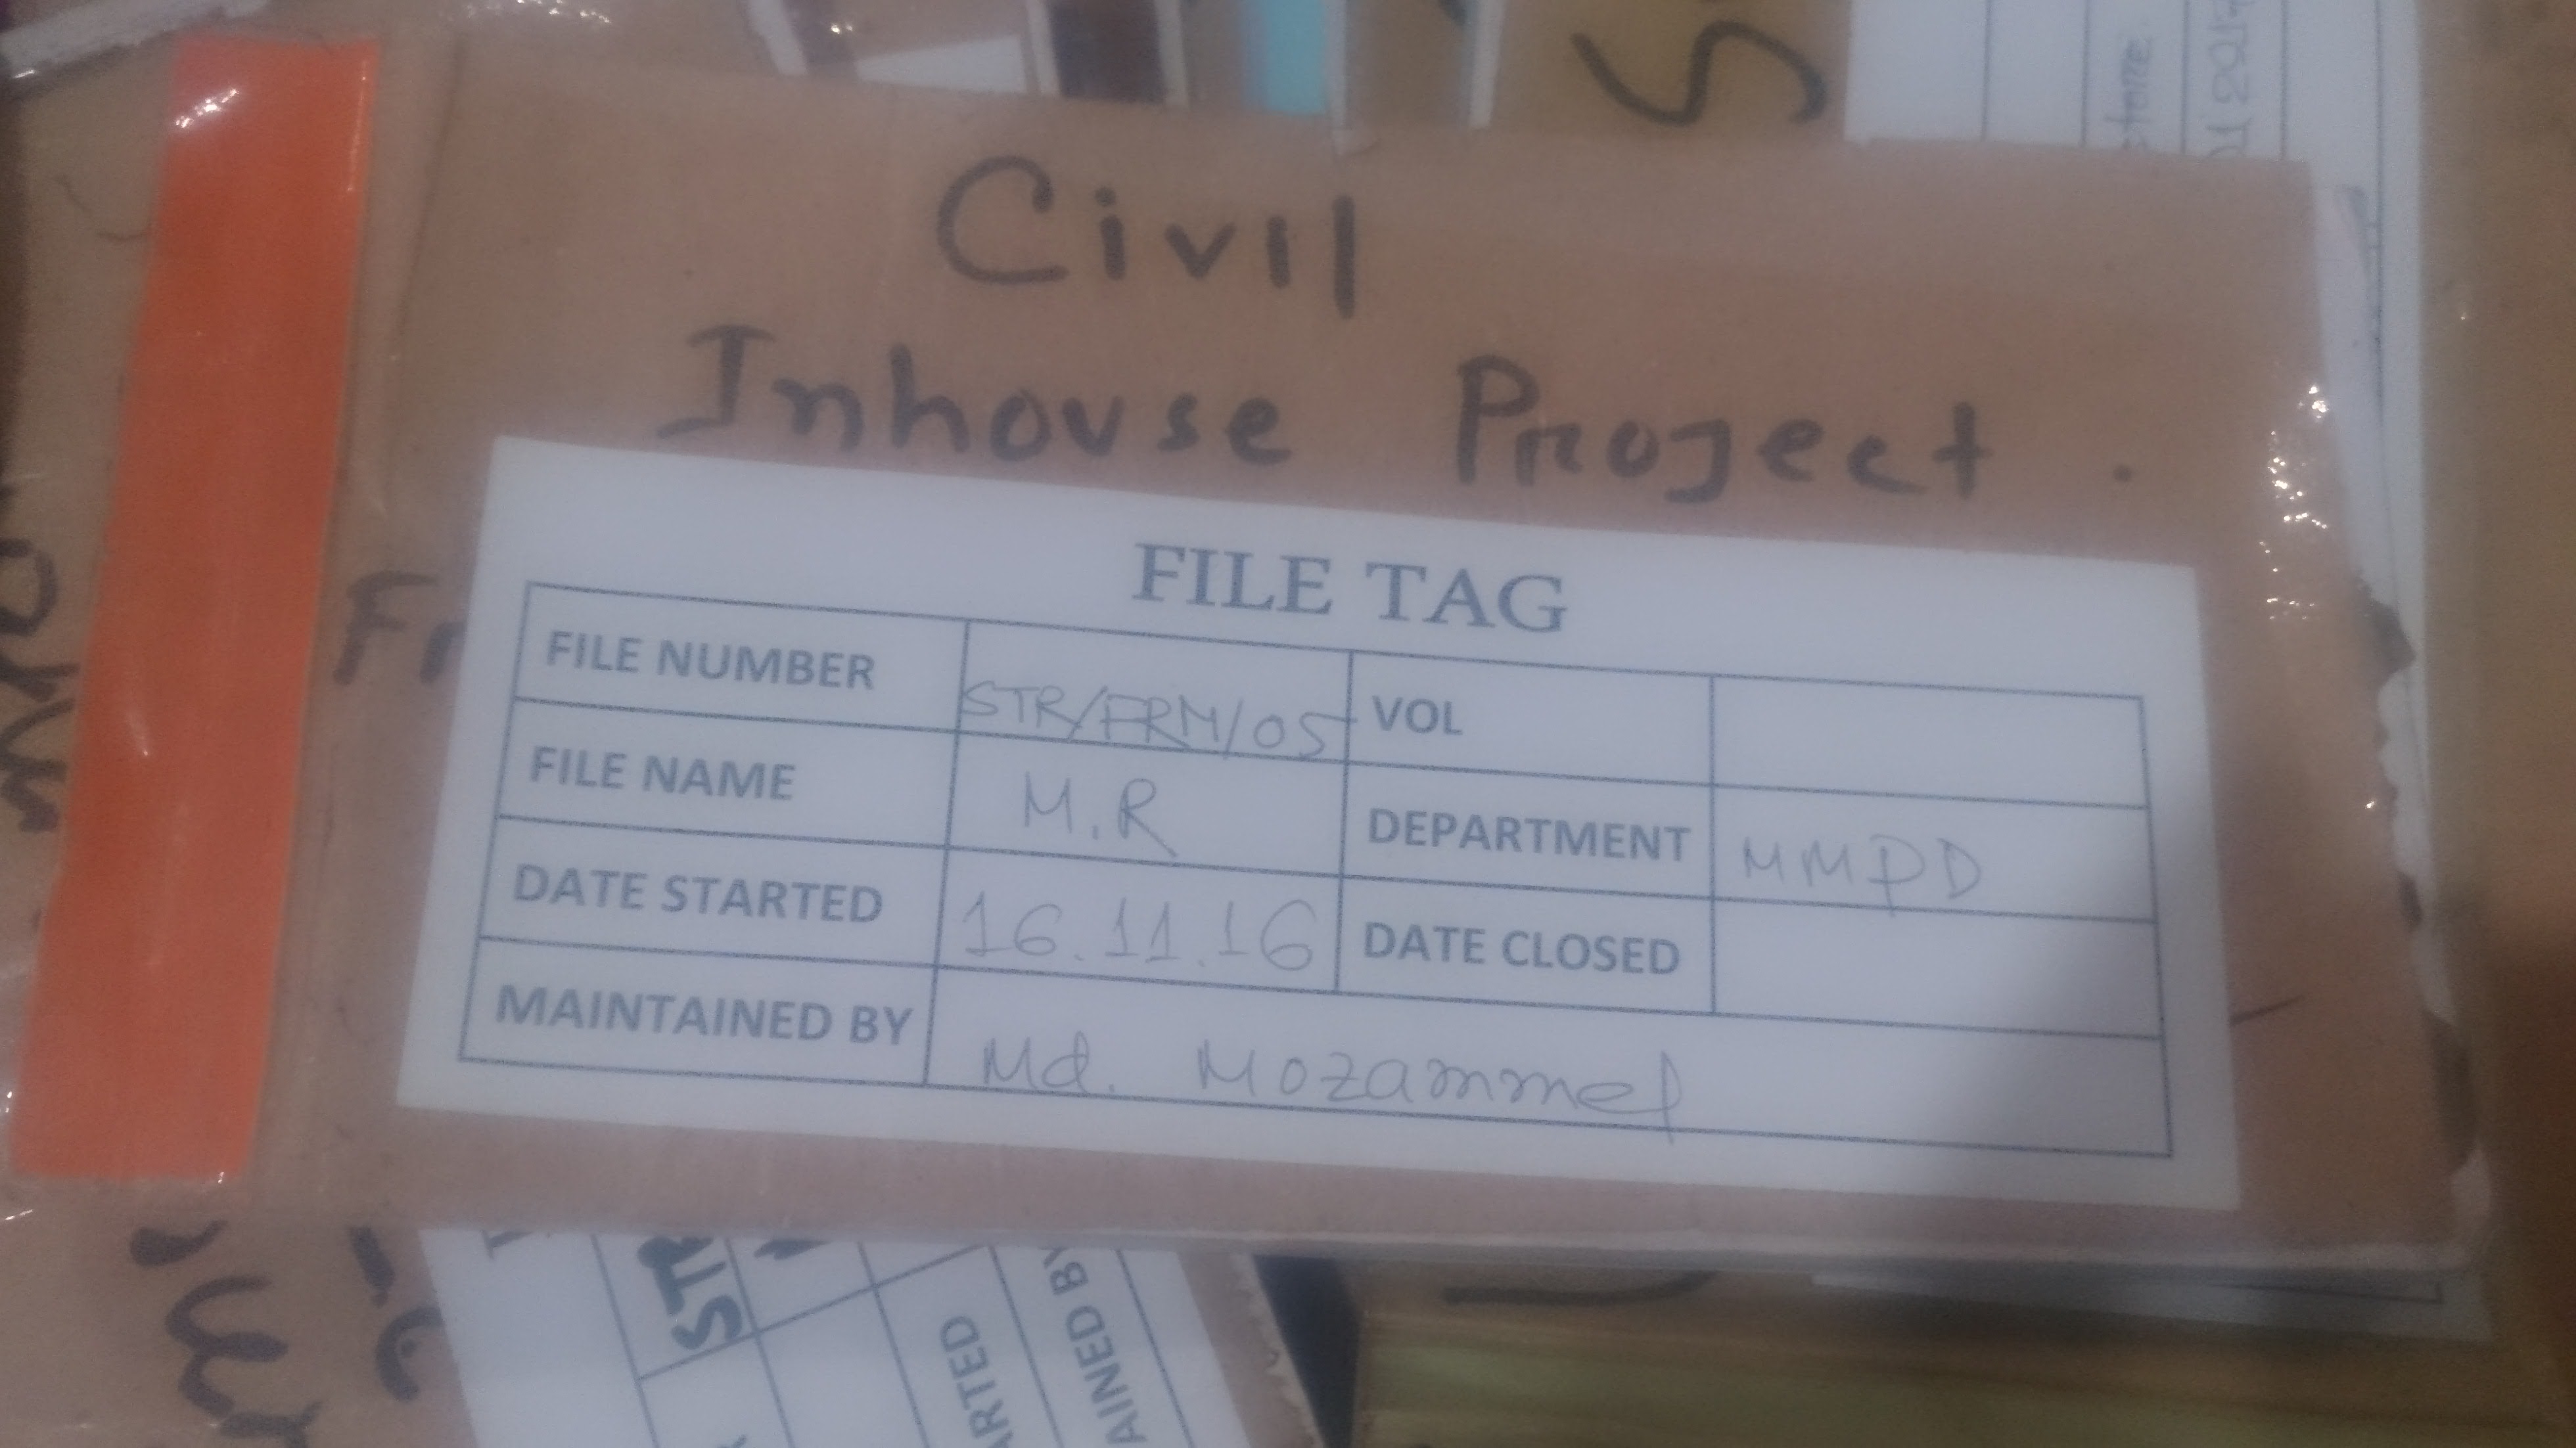 Civil
Inhouse Project.
FILE TAG
FILE NUMBER STR/FRM/05 VOL
FILE NAME M.R DEPARTMENT MMPD
DATE STARTED 16.11.16 DATE CLOSED
MAINTAINED BY Md. Mozammel
Fr
STR
ARTED
AINED BY